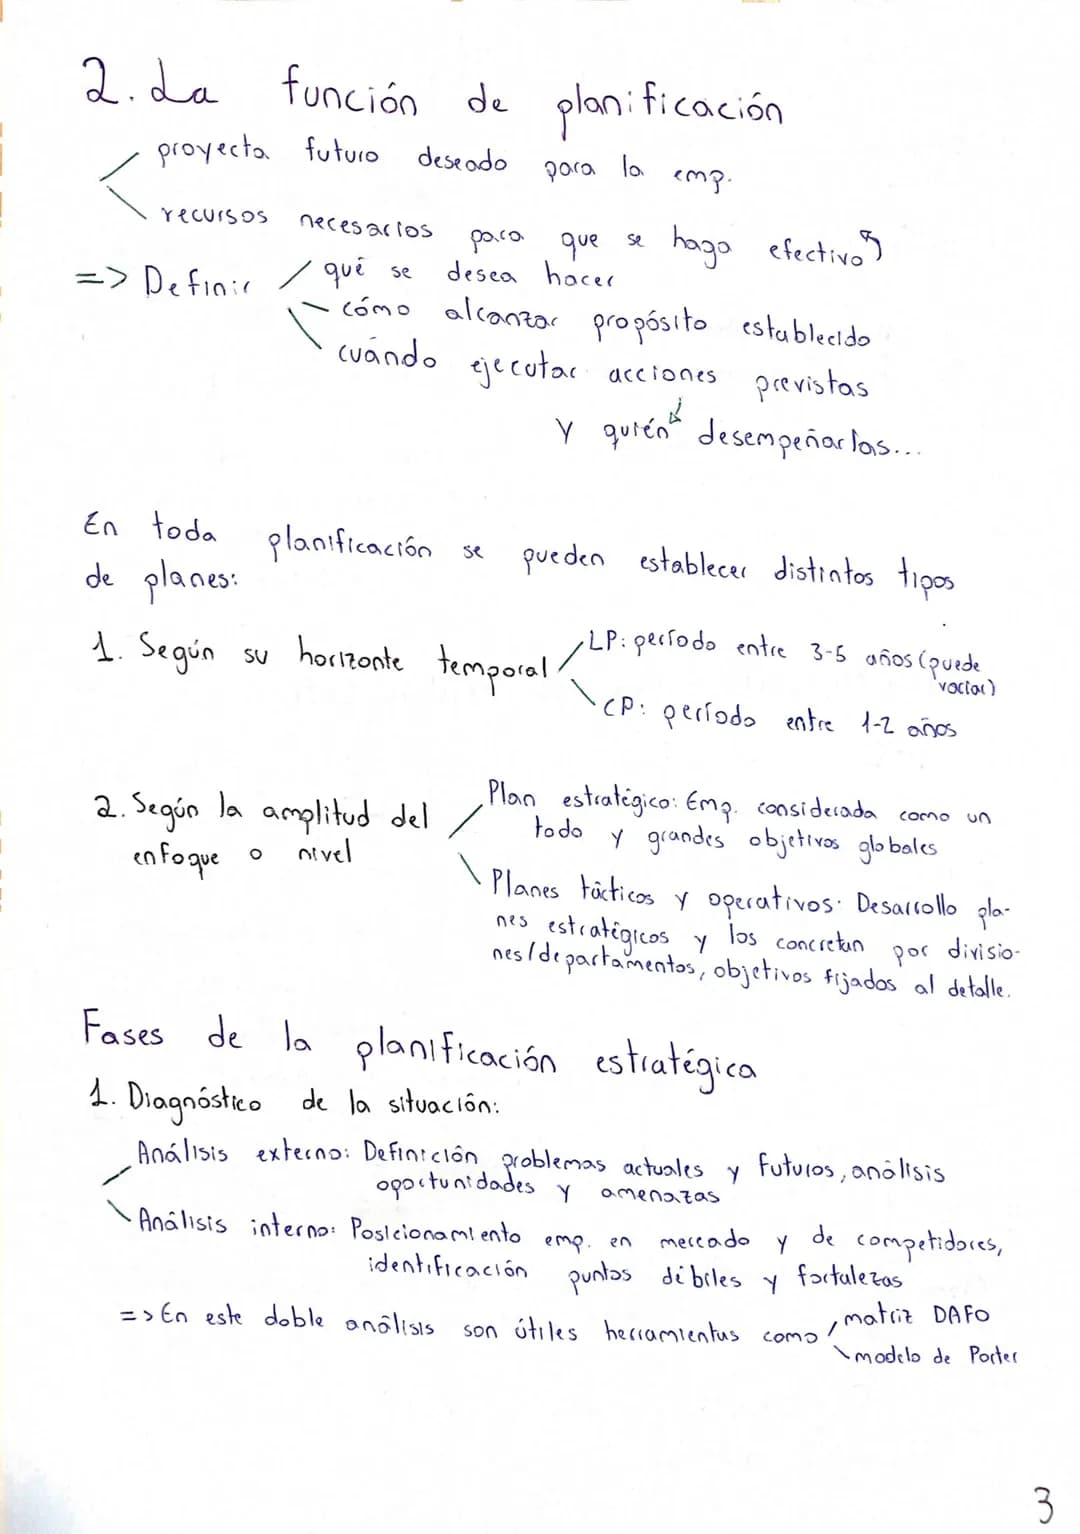 2. La función de planificación
proyecta futuro deseado para la emp.
recursos necesarios para que se haga efectivo
=> Definir
qué se desea hacer
cómo alcanzar propósito establecido
cuándo ejecutar acciones previstas
y quién desempeñarlas...
En toda planificación se pueden establecer distintos tipos
de planes:
1. Según su horizonte temporal
LP: período entre 3-5 años (puede
variar)
CP: período entre 1-2 años
2. Según la amplitud del
enfoque o nivel
Plan estratégico: Emp. considerada como un
todo y grandes objetivos globales
Planes tácticos y operativos: Desarrollo pla-
nes estratégicos y los concretan por divisio-
nes/departamentos, objetivos fijados al detalle.
Fases de la planificación estratégica
1. Diagnóstico de la situación:
Análisis externo: Definición problemas actuales y futuros, análisis
oportunidades y amenazas
Análisis interno: Posicionamiento emp. en mercado y de competidores,
identificación puntos débiles y fortalezas
=> En este doble análisis son útiles herramientas como
matriz DAFO
modelo de Porter
3